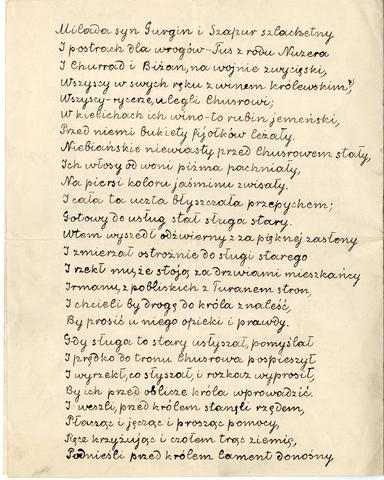 Milada syn Gurgin i Szapur szlachetny
I postrach dla wrogów–Tus z rodu Nuzera
I Churrad i Biżan, na wojnie zwycięski,
Wszyscy w swych ręku z winem królewskim,
Wszyscy–rycerze, ulegli Chusrowi;
W kielichach ich wino–to rubin jemeński,
Przed niemi bukiety fijołków leżały.
Niebiańskie niewiasty przed Chusrowem stały,
Ich włosy od woni piżma pachniały,
Na piersi koloru jaśminu zwisały.
I cała ta uczta błyszczała przepychem;
Gotowy do usług stał sługa stary.
Wtem wyszedł odźwierny z za pięknej zasłony
I zmierzał ostrożnie do sługi starego
I rzekł mu, że stoją za drzwiami mieszkańcy
Irmanu, z pobliskich z Turanem stron,
I chcieli by drogę do króla znaleść,
By prosić u niego opieki i prawdy.
Gdy sługa to stary usłyszał, pomyślał
I prędko do tronu Chusrowa pospieszył
I wyrzekł, co słyszał, i rozkaz wyprosił,
By ich przed oblicze króla wprowadzić.
I weszli, przed królem stanęli rzędem,
Płacząc i jęcząc i prosząc pomocy,
Ręce krzyżując i czołem trąc ziemię,
Podnieśli przed królem lament donośny